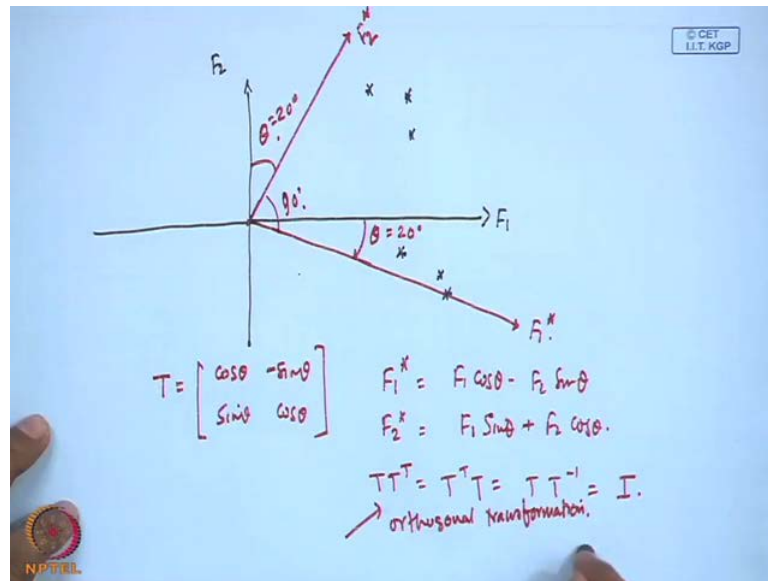 © CET
I.I.T. KGP
F₂*
F₂
θ=20°
90°.
F₁
θ = 20°
F₁*
T = [ cosθ -sinθ
sinθ cosθ ]
F₁* = F₁ cosθ - F₂ sinθ
F₂* = F₁ sinθ + F₂ cosθ.
TTᵀ = TᵀT = T T⁻¹ = I.
orthogonal transformation.
NPTEL